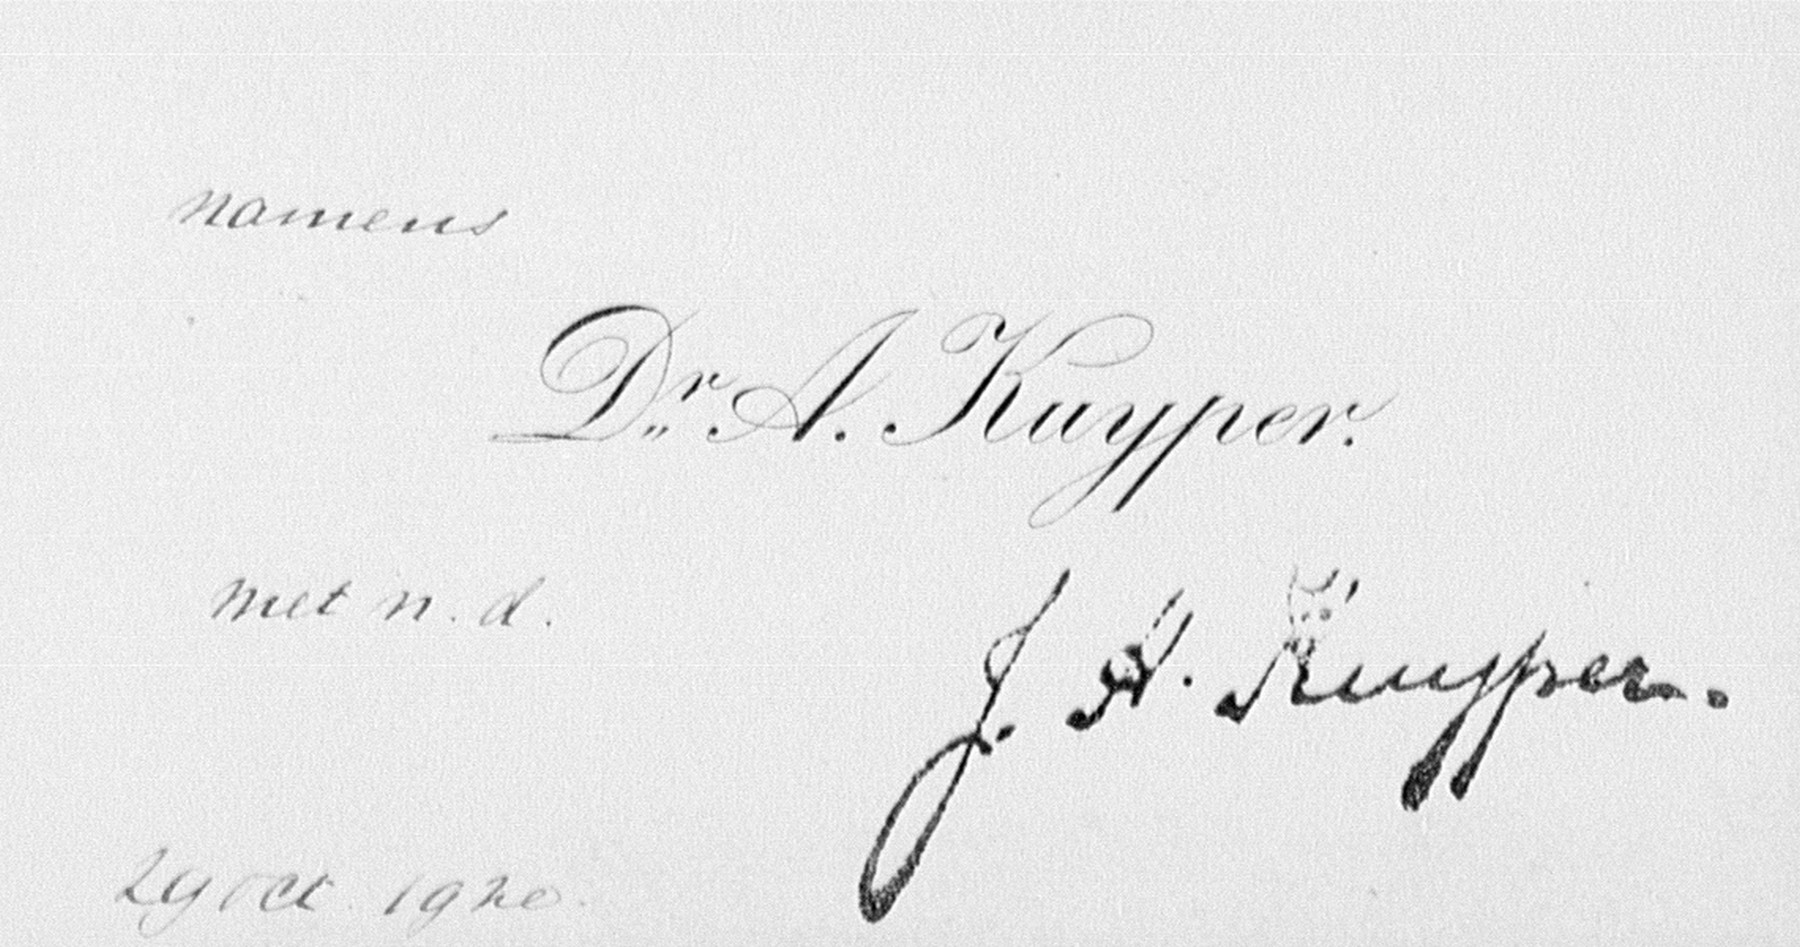 namens
Dr. A. Kuyper.
met n. d.
J. A. Kuyper.
29 oct. 1920.